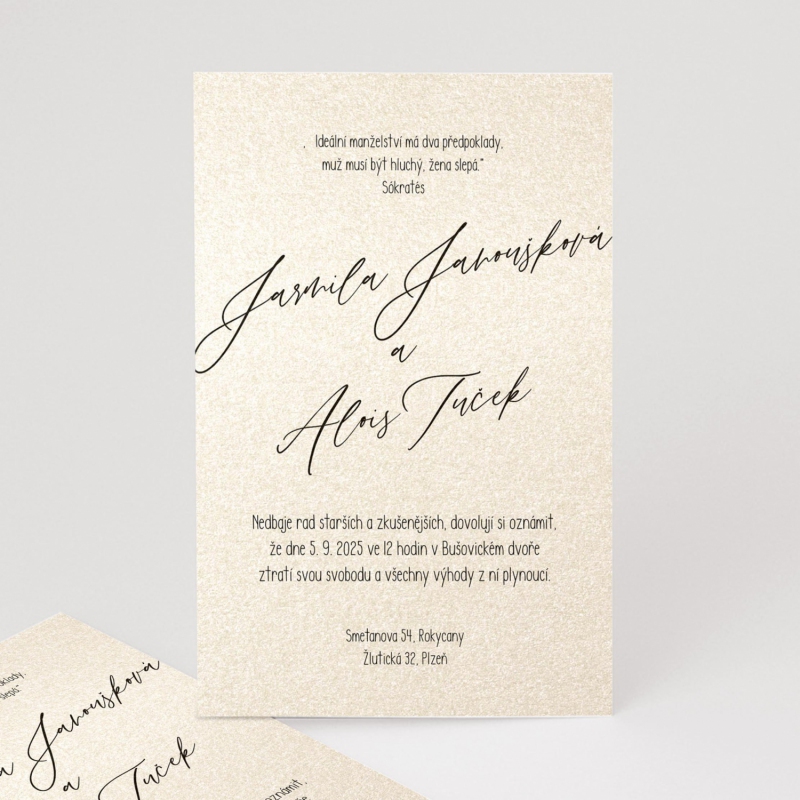 ‚ Ideální manželství má dva předpoklady,
muž musí být hluchý, žena slepá."
Sókratés
Jarmila Janoušková
a
Alois Tuček
Nedbaje rad starších a zkušenějších, dovolují si oznámit,
že dne 5. 9. 2025 ve 12 hodin v Bušovickém dvoře
ztratí svou svobodu a všechny výhody z ní plynoucí.
Smetanova 54, Rokycany
Žlutická 32, Plzeň
slepá."
Janoušková
a
Tuček
oznámit,